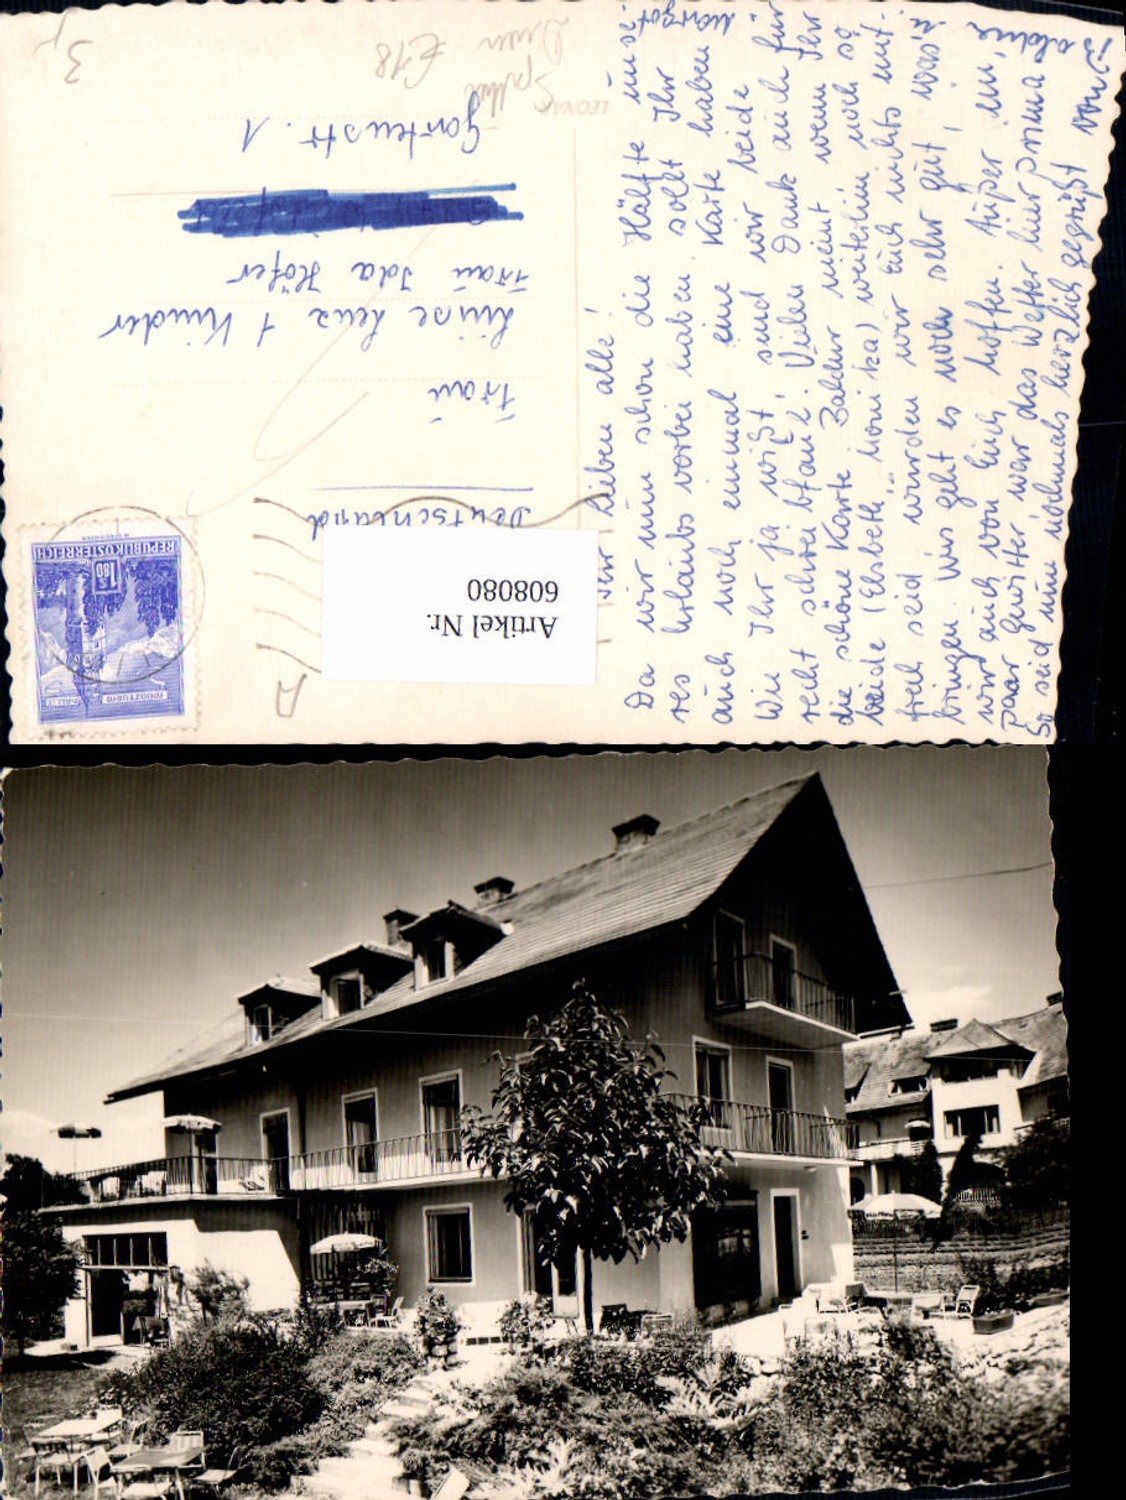 Ihr Lieben alle!
Da wir nun schon die Hälfte uns
res Urlaubs vorbei haben sollt Ihr
auch noch einmal eine Karte haben
Wie Ihr ja wißt, sind wir beide
recht schreibfaul. Vielen Dank auch für
die schöne Karte meint wenn Ihr
beide (Elsbeth, Monika) weiterhin noch so
frech seid würden wir Euch nichts mit-
bringen. Uns geht es noch sehr gut, was
wir auch von Euch hoffen. Außer ein
paar Gewitter war das Wetter hier prima
So seid nun nochmals herzlich gegrüßt von
Margot
Deutschland
Frau
Luise Lenz + Kinder
Frau Ida Höfer
Gartenstr. 1
REPUBLIK ÖSTERREICH
S 1.80
Artikel Nr.
608080
LEONAR
€18
3,-